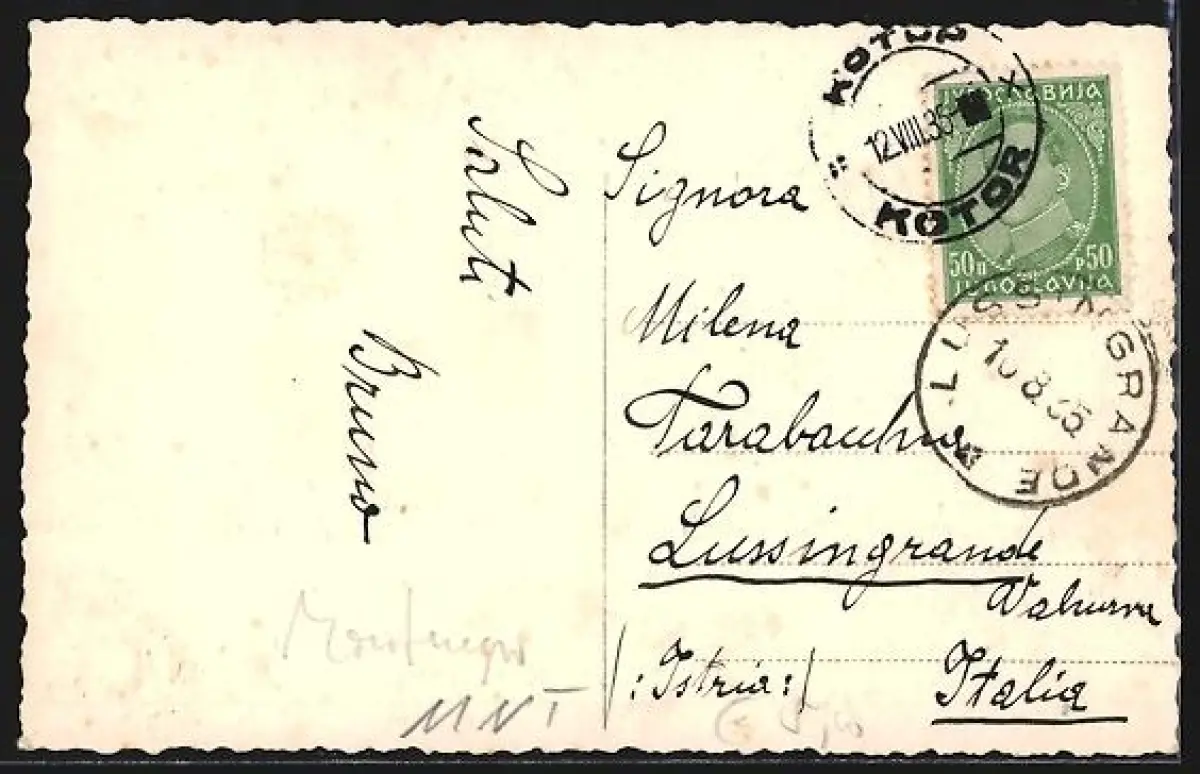 Saluti
Bruno
Signora
Milena
Lussingrande
/:Istria:/
Italia
ЈУГОСЛАВИЈА
50 П Р 50
JUGOSLAVIJA
KOTOR
12.VIII.35
KOTOR
LUSSINGRANDE
8.35
Montenegro
MNT